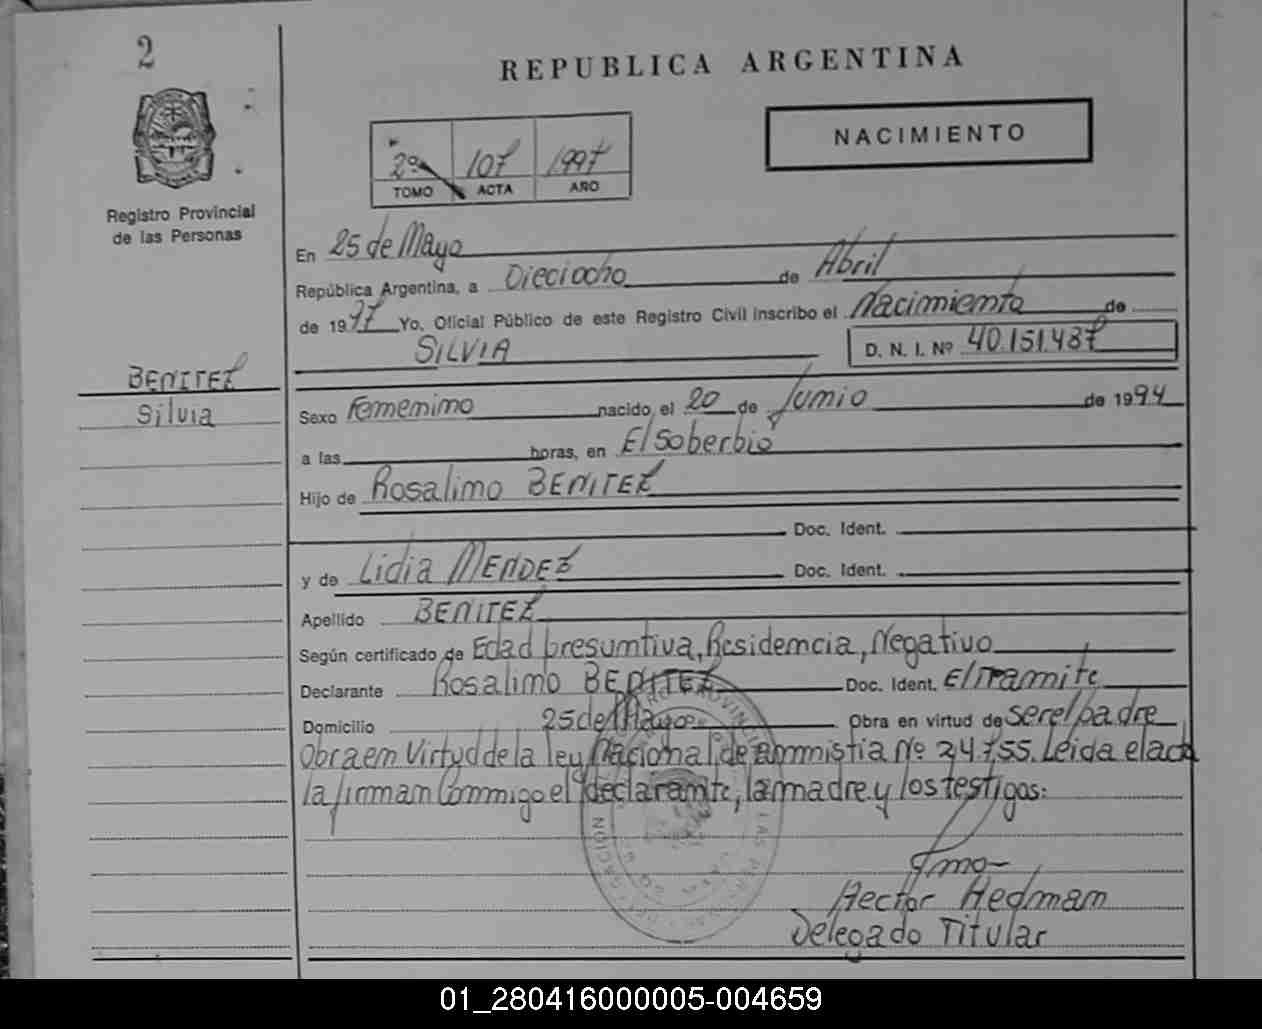 2
REPUBLICA ARGENTINA
NACIMIENTO
2º 107 1997
TOMO ACTA AÑO
Registro Provincial
de las Personas
En 25 de Mayo
República Argentina, a Dieciocho de Abril
de 1997 Yo, Oficial Público de este Registro Civil inscribo el Nacimiento de
SILVIA D. N. I. Nº 40.151.487
BENITEZ
Silvia
Sexo Femenino nacido el 20 de Junio de 1994
a las horas, en El Soberbio
Hijo de Rosalino BENITEZ
Doc. Ident.
y de Lidia MENDEZ Doc. Ident.
Apellido BENITEZ
Según certificado de Edad presumtiva, Residencia, Negativo
Declarante Rosalino BENITEZ Doc. Ident. El Tramite
Domicilio 25 de Mayo Obra en virtud de ser el padre
Obra en Virtud de la ley Nacional de ammistia Nº 24.755. Leida el acta
la firman Conmigo el declarante, la madre y los testigos:
Fmo-
Hector Hedman
Delegado Titular
01_280416000005-004659